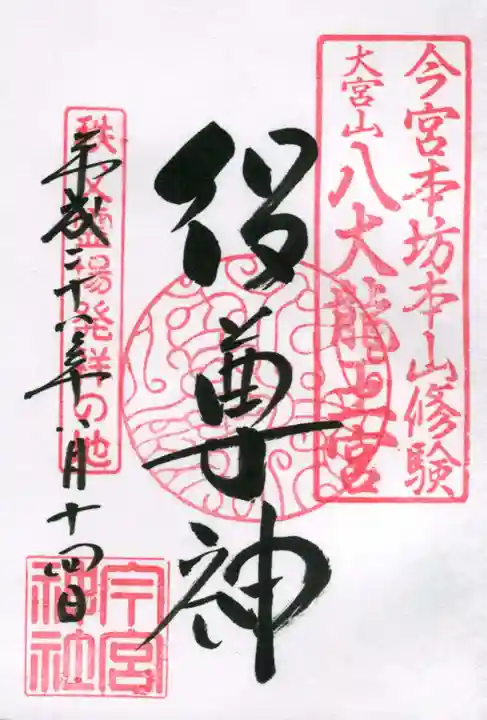 今宮本坊本山修験
大宮山八大龍王宮
役尊神
秩父霊場発祥の地
平成二十八年八月十四日
今宮神社